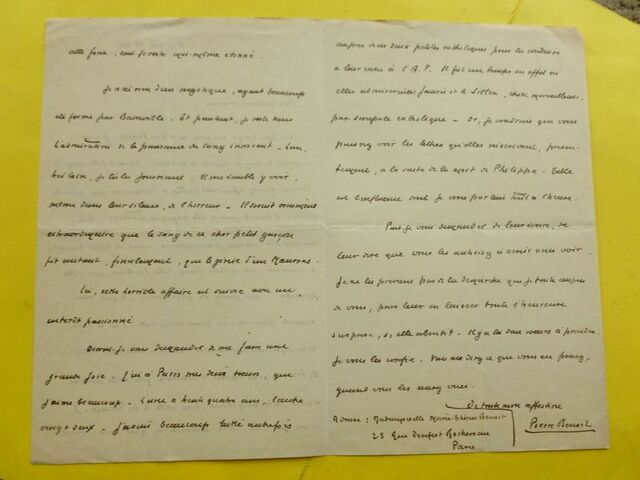 cette force, dont je reste moi-même étonné.
Je n'ai rien d'un mystique, ayant beaucoup
été formé par Bainville. Et pourtant, je reste dans
l'admiration de la puissance du sang innocent - Loin,
très loin, je lis les journaux. Il me semble y voir,
même dans leur silence, de l'horreur - Il serait
extraordinaire que le sang de ce cher petit garçon
fît autant, finalement, que le génie d'un Maurras.
Ici, cette horrible affaire est suivie avec un
intérêt passionné.
Dois-je vous demander de me faire une
grande joie. J'ai à Paris mes deux sœurs, que
j'aime beaucoup. L'une a trente quatre ans, l'autre
vingt deux. J'avais beaucoup lutté autrefois
auprès de ces deux petites catholiques pour les conduire
à l'A.F. Il fut un temps en effet où
elles admiraient Jaurès et le Sillon, chose merveilleuse,
par scrupule catholique - Or, je voudrais que vous
puissiez voir les lettres qu'elles m'écrivent,
à la suite de la mort de Philippe. Telle
est l'influence dont je vous parlais tout à l'heure.
Puis-je vous demander de leur écrire, de
leur dire que vous les autorisez à venir vous voir.
Je ne les préviens pas de la démarche que je tente auprès
de vous, pour leur en laisser toute l'heureuse
surprise, si elle aboutit. Il y a là deux sœurs à prendre.
Je vous les confie. Vous me direz ce que vous en pensez,
quand vous les aurez vues.
De toute mon affection
Pierre Benoit
Adresse : Mademoiselle Benoit
23 Rue Denfert Rochereau
Paris